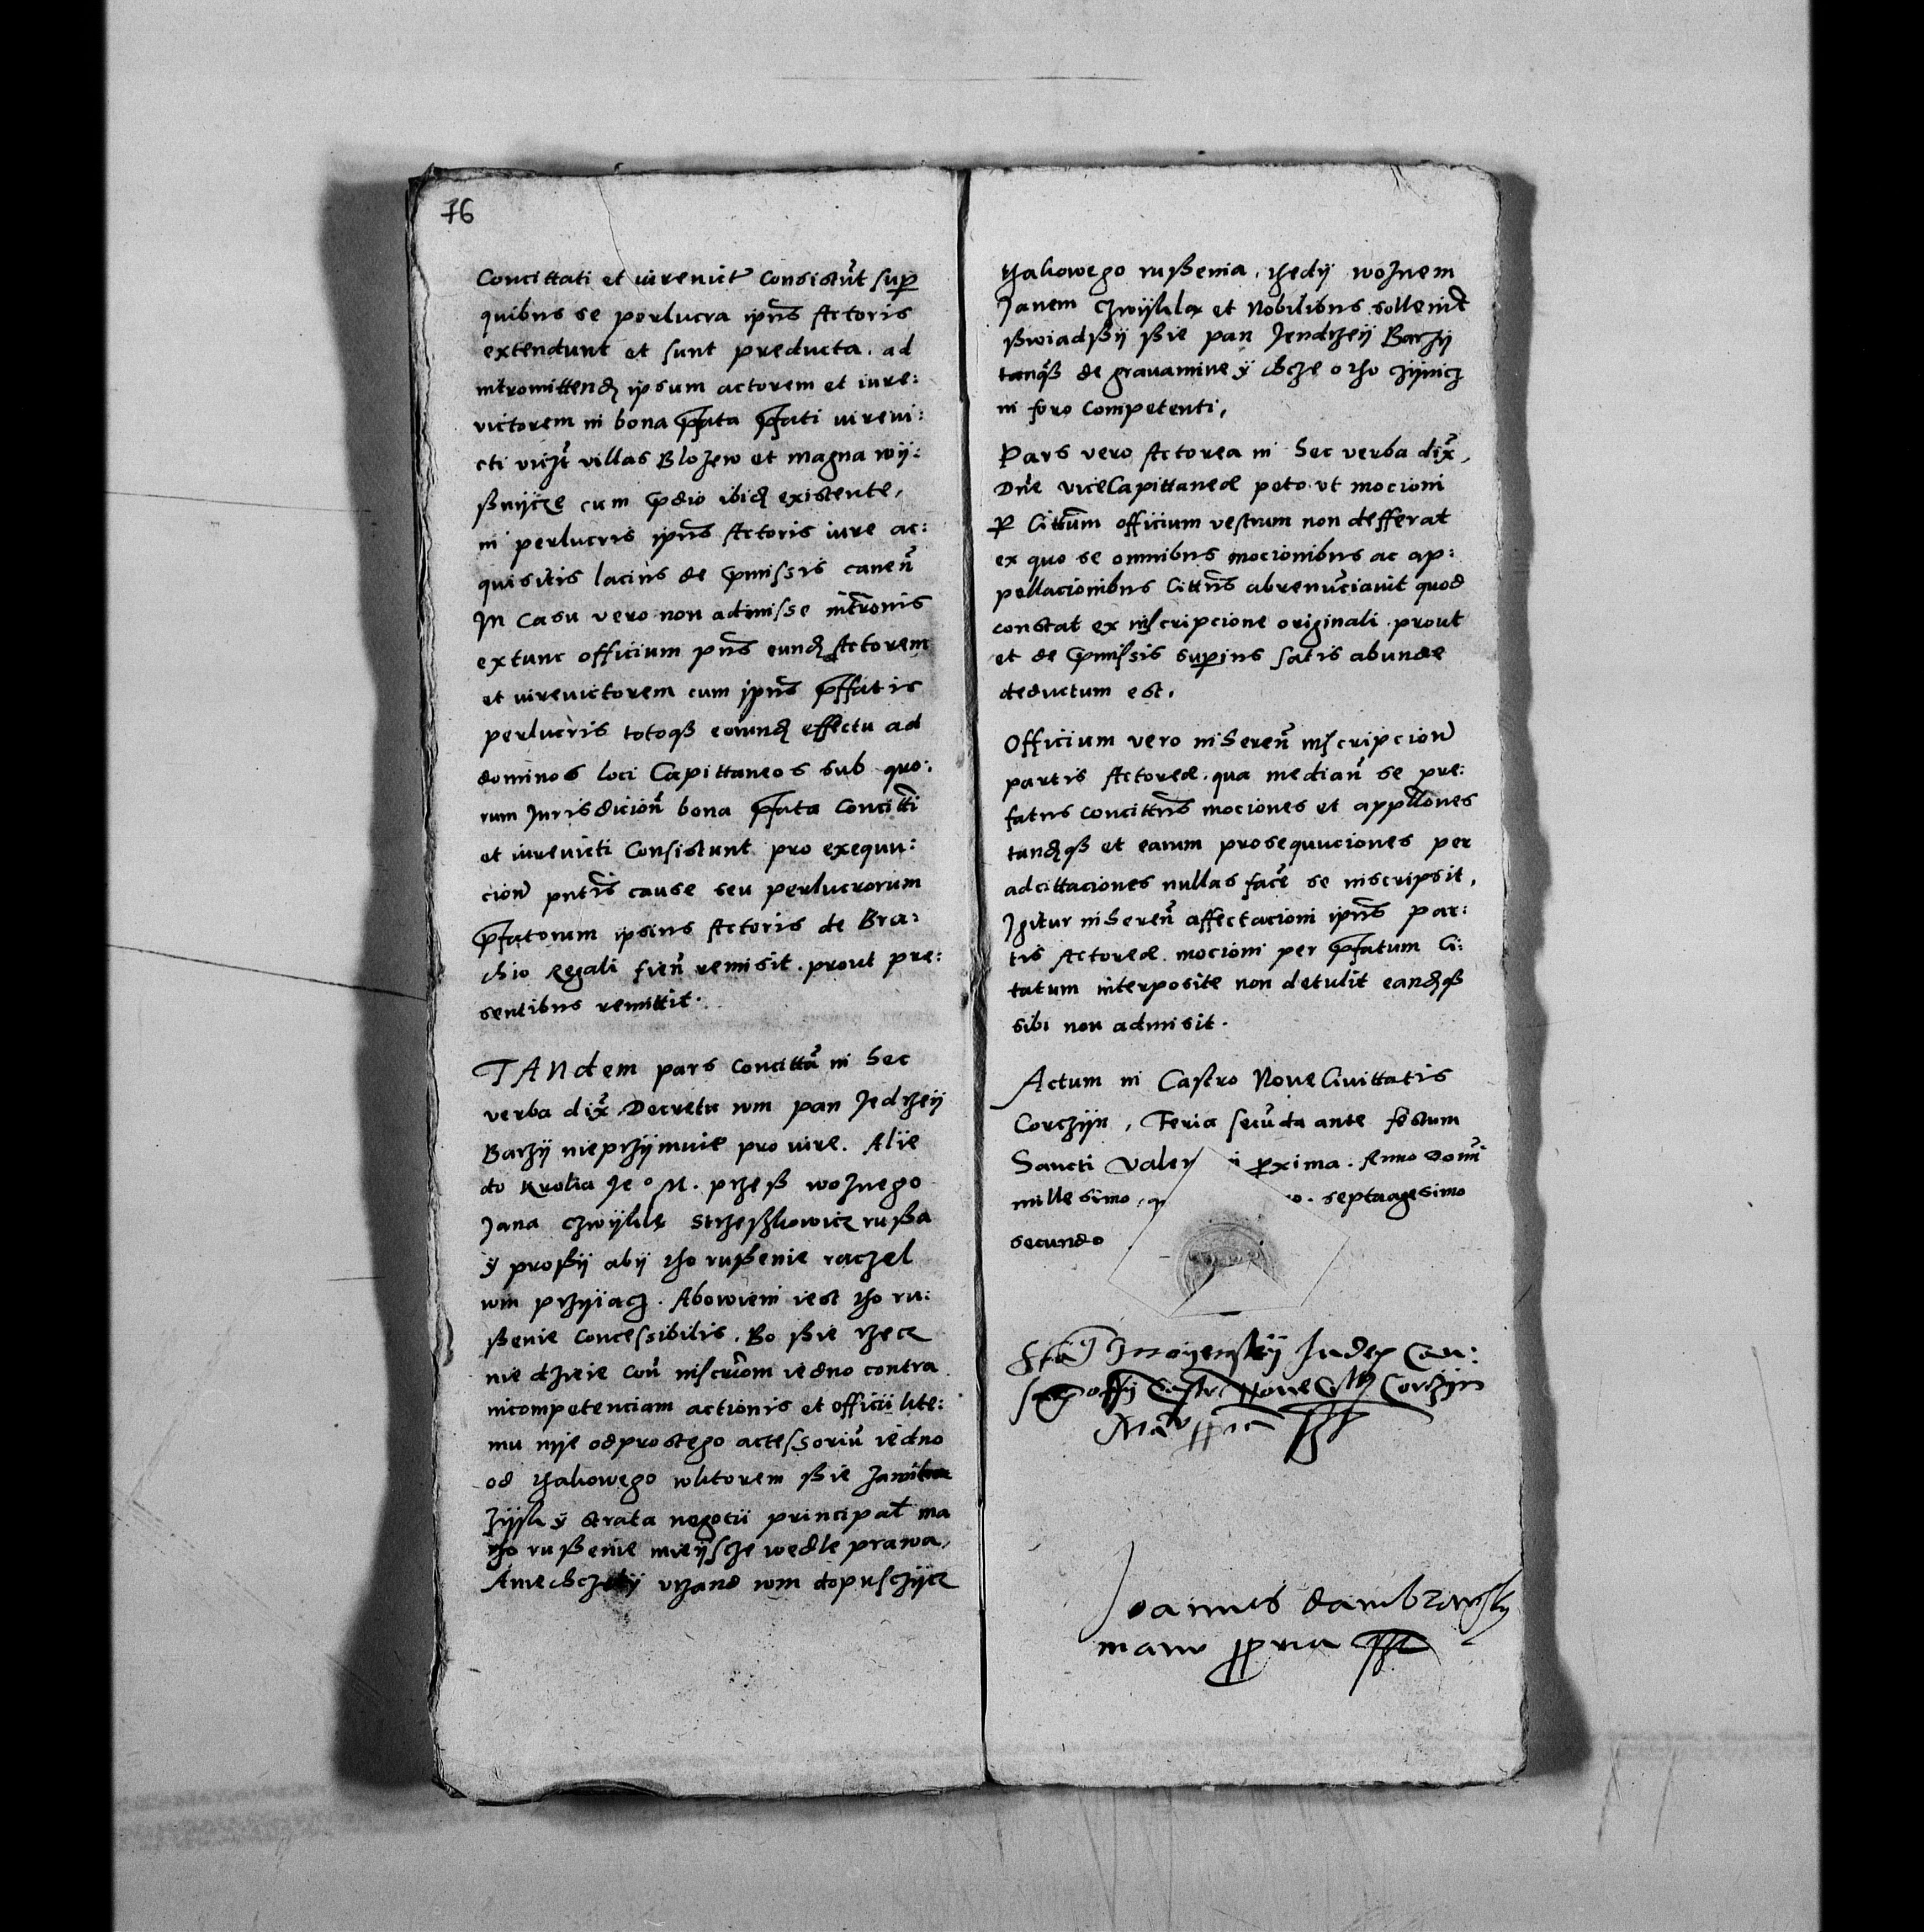 76
Concittati et iurevict consistūt sup
quibus se perlucra ipius Actoris
extendunt et sunt preducta. ad
intromittend ipsum actorem et iure:
victorem in bona pfata pfati iurevi:
cti vidzt villas Blozew et magna wij:
sznijcze cum pdio ibid existente,
in perlucris ipius Actoris iure ac:
quisitis lacius de pmissis canen
In Casu vero non admisse intromis
extunc officium pns eund Actorem
et iurevictorem cum ipius pffatis
perlucris totoqz eorund effectu ad
dominos loci Capittaneos sub quo:
rum Jurisdicion bona pfata Concitti
et iurevicti Consistunt pro exequu:
cion pntis cause seu perlucrorum
pfatorum ipsius Actoris de Bra:
chio Regali fien remisit. prout pre:
sentibus remittit.
TANdem pars Concitta in hec
verba dix Decretu wm pan Jedrzeij
Barzij nieprzijmuie pro iure. Alie
do Krolia Je° M. przesz woznego
Jana czwijkle Strzeszkowicz rusza
ÿ proszij abij tho ruszenie raczel
wm przijiacz. Abowiem iest tho ru:
szenie Concessibilis. Bo szie rzecz
nie dzieie Con inscriom iedno contra
incompetenciam actionis et officii kte:
mu nije odprostego accessoriu iedno
od thakowego wktorem szie
zijsk ÿ strata negocii principal ma
tho ruszenie mieijscze wedle prawa,
vrzand wm dopusczijcz
thakowego ruszenia, thedij woznem
Janem czwijkla et Nobilibus sollenit
szwiadszij szie pan Jendrzeij Barzij
tanqsz de gravamine ÿ chcze o tho czijnicz
in foro Competenti,
Pars vero Actorea in hec verba dix,
Dne viceCapittanee peto vt mocioni
p Cittum officium vestrum non defferat
ex quo se omnibus mocionibus ac ap:
pellacionibus Cittus abrenuciavit quod
constat ex inscripcione originali. prout
et de pmissis supius satis abunde
deductum est.
Officium vero inheren inscripcion
partis Actoree. qua median se pre:
fatus concittus mociones et appllones
tandqz et earum prosequuciones per
adcittaciones nullas face se inscripsit,
Igitur inheren affectacioni ipius par:
tis Actoree. mocioni per pfatum Ci:
tatum interposite non detulit eandqz
sibi non admisit.
Actum in Castro Nove Civittatis
Corczijn, Feria secuda ante festum
Sancti Valen i pxima. Anno Domi
millesimo, q o. septuagesimo
secundo
Judex Cau:
offij Castr Nove Corczijn
Joannes dambrowsky
manu ppria